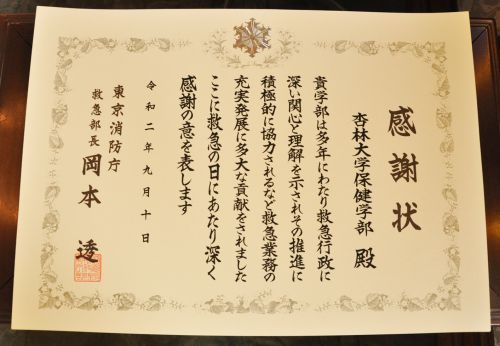 感謝状
杏林大学保健学部 殿
貴学部は多年にわたり救急行政に
深い関心と理解を示されその推進に
積極的に協力されるなど救急業務の
充実発展に多大な貢献をされました
ここに救急の日にあたり深く
感謝の意を表します
令和二年九月十日
東京消防庁
救急部長 岡本 透